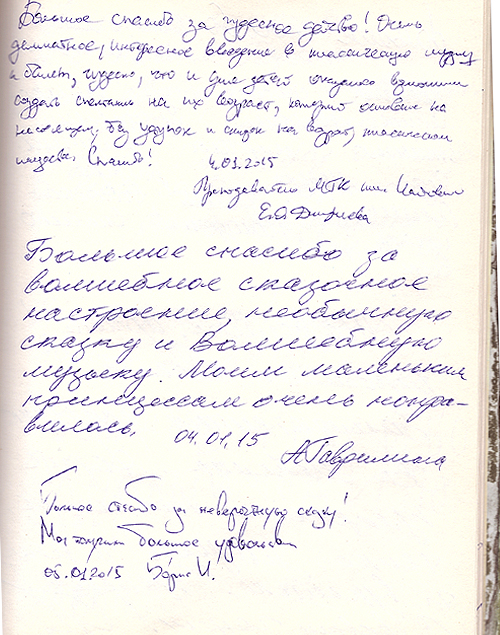 Большое спасибо за чудесное действо! Очень
деликатное, интересное введение в классическую музыку
и балет, чудесно, что и для детей
создать спектакль на их возраст, который основан на
настоящем, без уступок и скидок на возраст, классическом
Спасибо!
4.01.2015
Преподаватель МТК
Большое спасибо за
волшебное сказочное
настроение, необычную
сказку и Волшебную
музыку. Моим маленьким
принцессам очень понра-
вилось.
04.01.15
А Гаврилина
Большое спасибо за невероятную сказку!
Мы получили большое удовольствие
05.01.2015 Борис И.